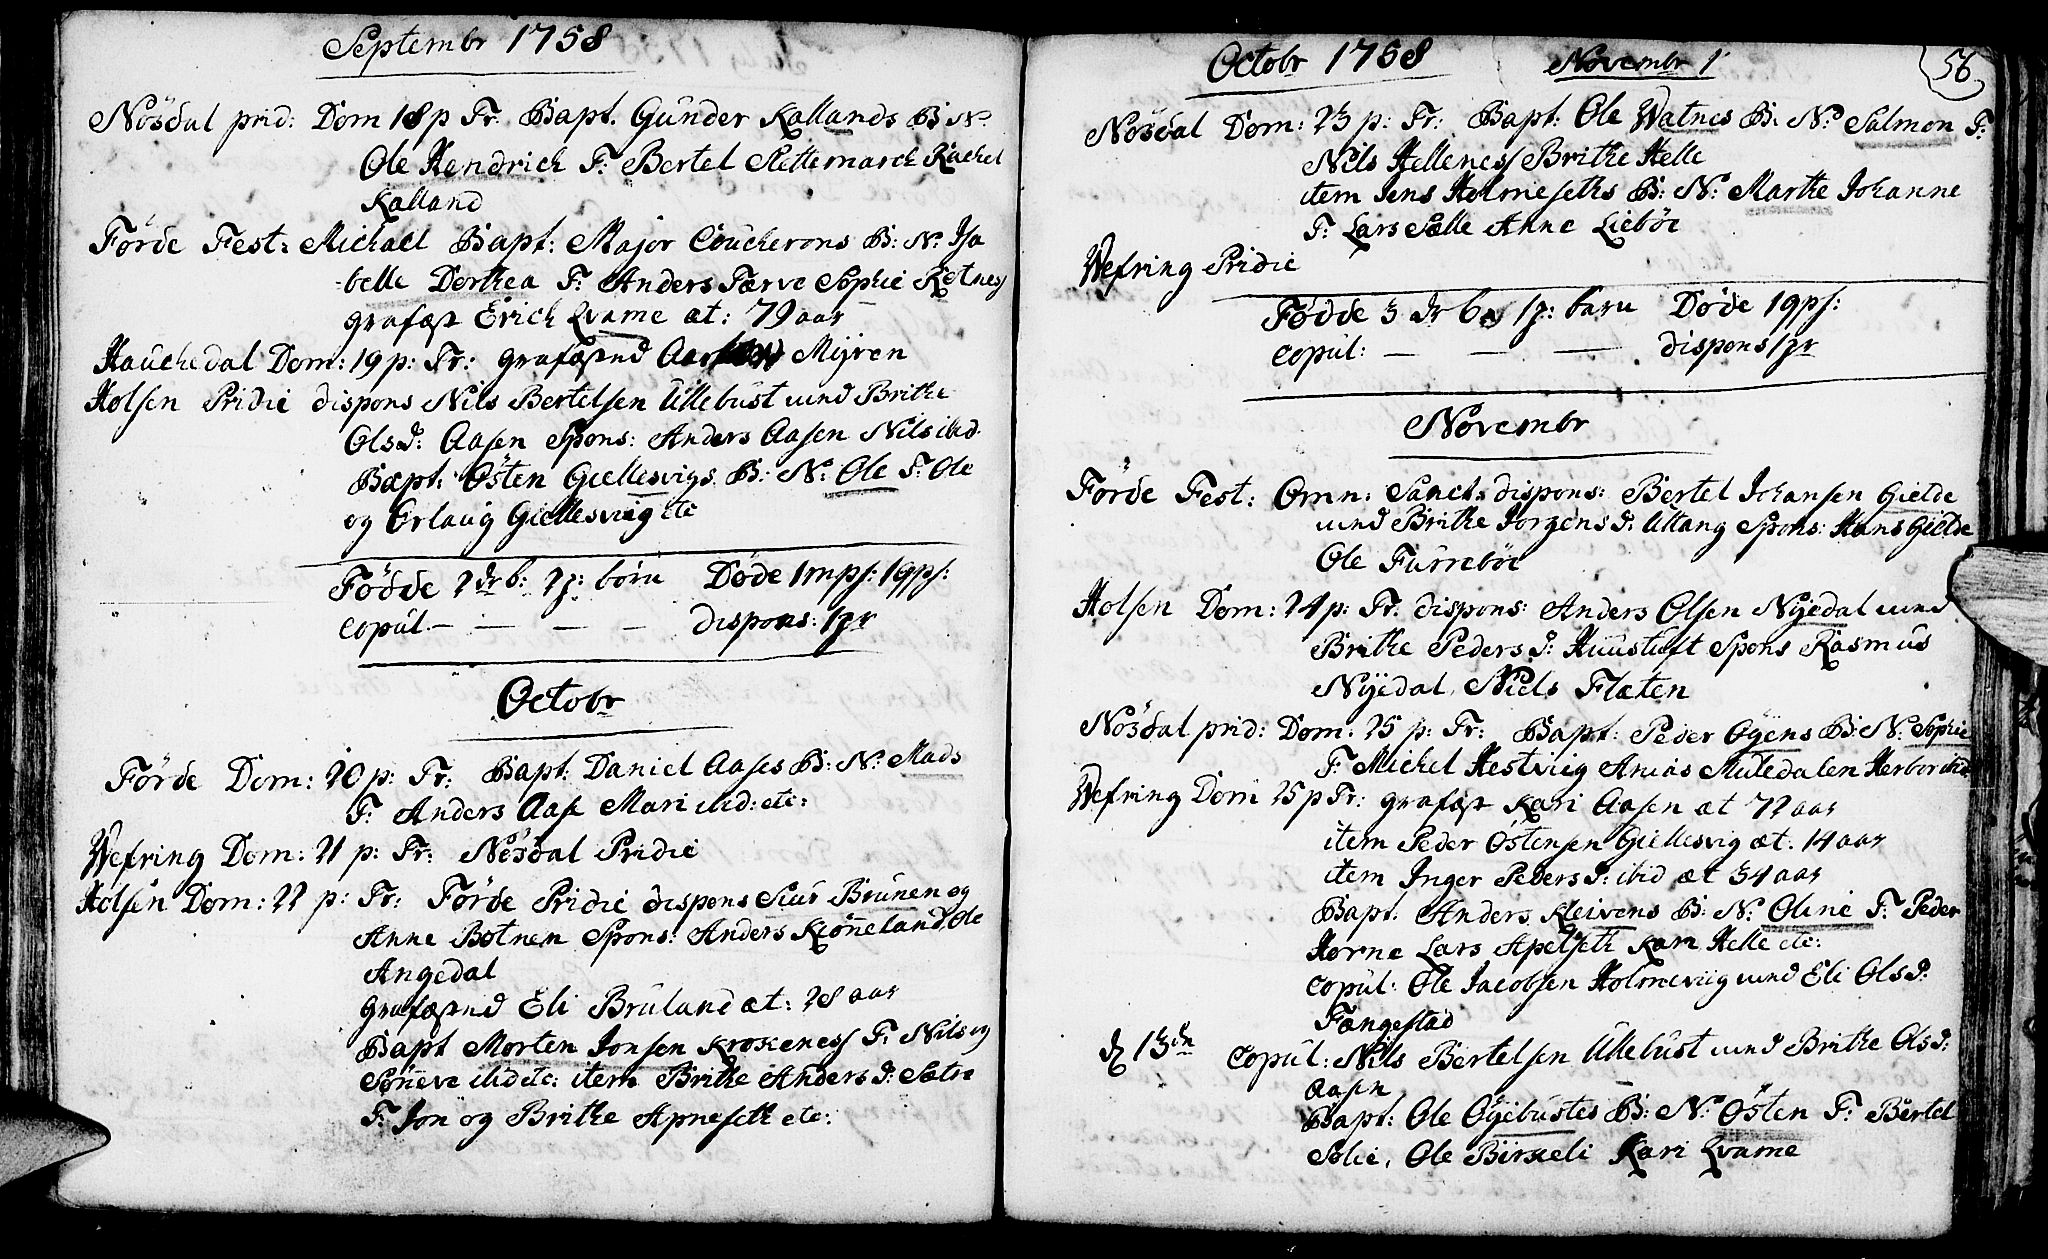 Septembr 1758
Nösdal prid: Dom 18 p Tr. Bapt. Gunder Kallands B: N.
Ole Hendrich F. Bertel Slettemarck Rachel
Kalland
Förde Fest: Michael Bapt: Major Coucherons B: N. Isa
belle Dorthea F. Anders Farve Sophie
grafæst Erich Qvame æt: 79 aar
Hauchedal Dom: 19 p: Tr: grafæstnd Mijren
Holsen Pridie dispons Nils Bertelsen Ullebust und Brithe
Olsd: Aasen Spons: Anders Aasen Nils ibid.
Bapt: Östen Giellesvigs B: N. Ole F. Ole
og Erlaug Giellesviig etc
Födde 2 dr b: 2 p: börn Döde 1 mps: 1 qps:
copul — — — — dispons: 1 pr
Octobr
Förde Dom: 20 p: Tr: Bapt: Daniel Aases B: N. Mads
F. Anders Aase Mari ibid: etc:
Wefring Dom: 21 p: Tr: Nösdal Pridie
Holsen Dom: 22 p: Tr: Förde Pridie dispons Siur Brunen og
Anne Botnen Spons: Anders Klöneland, Ole
Angedal
grafæstnd Eli Bruland æt: 28 aar
Bapt Morten Jonsen Kroxeness F. Nils og
Söneve ibid etc: item Brithe Anders d: Sætre
F. Jon og Brithe Apneseth etc:
Octobr 1758 Novembr 1 56
Nösdal Dom: 23 p: Tr: Bapt: Ole Watnes B: N. Salmon F.
Nils Helleness Brithe Helle
item Jens Holmeseths B: N. Marthe Johanne
F. Lars Sælle Anne Lieböe
Wefring Pridie
Födde 3 dr b 1 p: barn Döde 1 qps:
copul: — — — dispons 1 pr
Novembr
Förde Fest: Omn: Sanct: dispons: Bertel Johansen Gielde
und Brithe Jorgensd: Ukang Spons: Hans Gielde
Ole Furreböe
Holsen Dom: 24 p: Tr. dispons: Anders Olsen Nyedal und
Brithe Peders d: Huustuft Spons Rasmus
Nyedal, Niels Flæten
Nösdal prid: Dom: 25 p: Tr: Bapt: Peder Oyens B: N. Sophie
F. Michel Hestviig Anias Muledalen Herbor ibid
Wefring Dom 25 p Tr: grafæst Kari Aasen æt 72 aar
item Peder Östensen Giellesvig æt. 14 aar
item Inger Peders d: ibid æt 34 aar
Bapt: Anders Kleivens B: N. Oline F. Peder
Horne Lars Apelseth Kari Helle etc:
copul: Ole Jacobsen Holmeviig und Eli Ols d:
Fængestad
d 13 dn copul: Nils Bertelsen Ullebust und Brithe Ols d:
Aasen
Bapt: Ole Oyebustes B: N. Östen F. Bertel
Solie, Ole Birkeli Kari Qvame